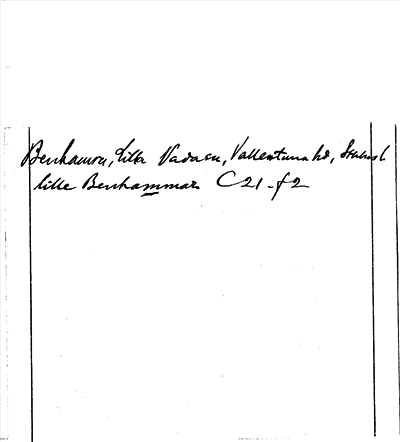 Benhamra, Lilla Vadasn, Vallentuna hd,
lille Benhammar C 21 - f 2